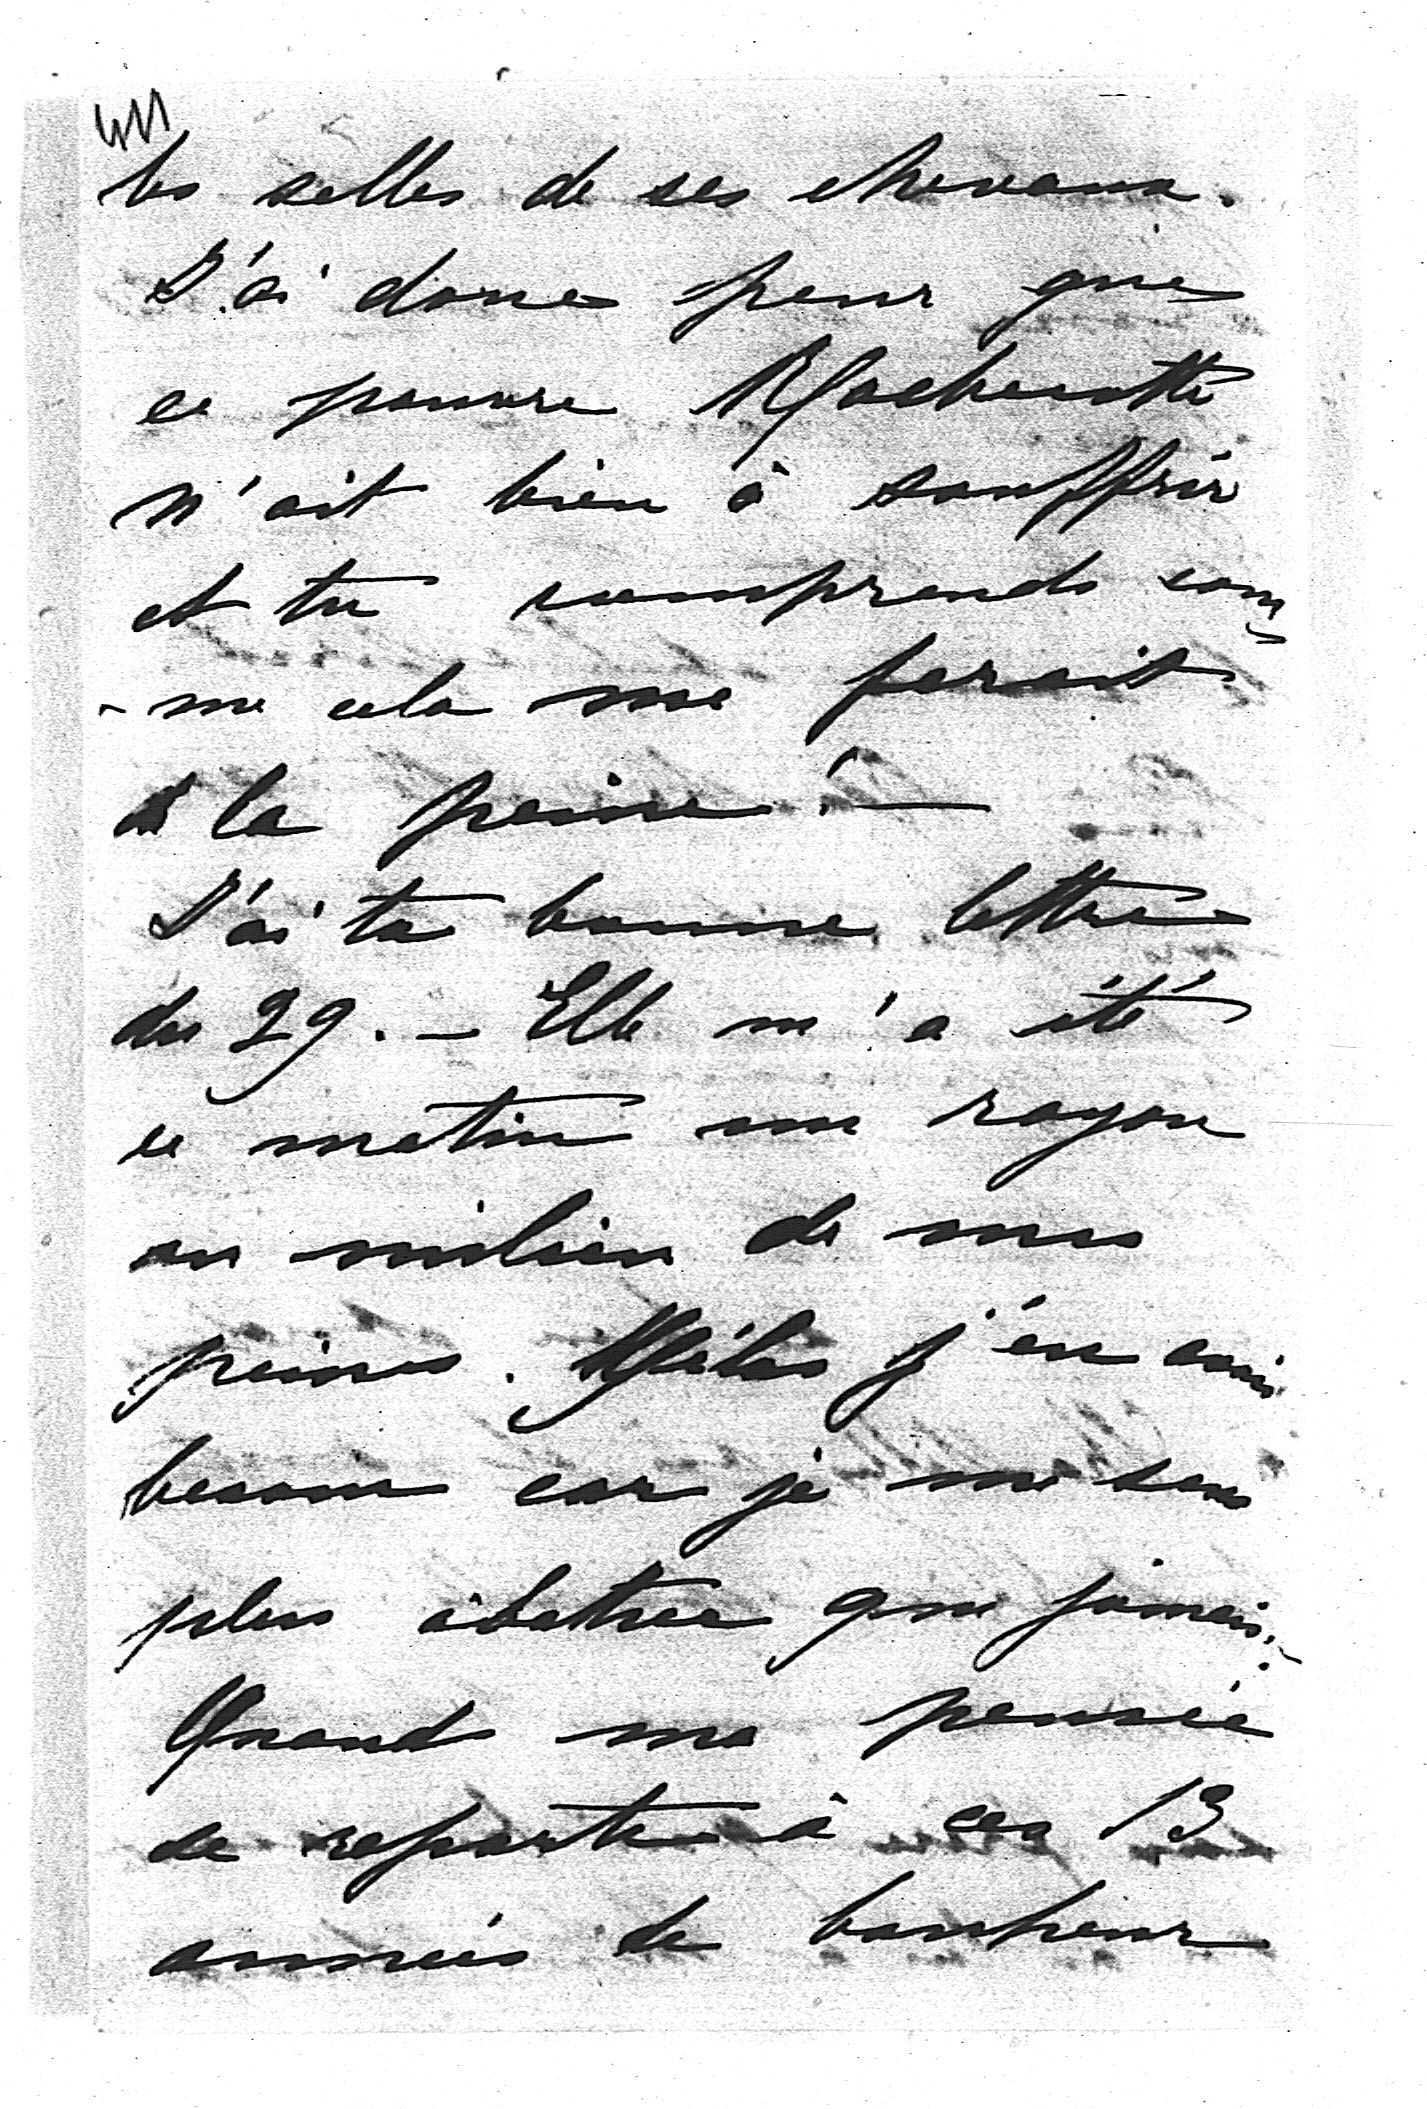 les selles de ses chevaux.
J'ai donc peur que
ce pauvre
n'ait bien à souffrir
et tu comprends com
- me cela me ferait
de la peine ! —
J'ai ta bonne lettre
du 29. — Elle m'a été
ce matin un rayon
au milieu de mes
peines. Hélas j'en avais
besoin car je me sens
plus abattue que jamais. -
Quand ma pensée
se reporte à ces 13
années de bonheur